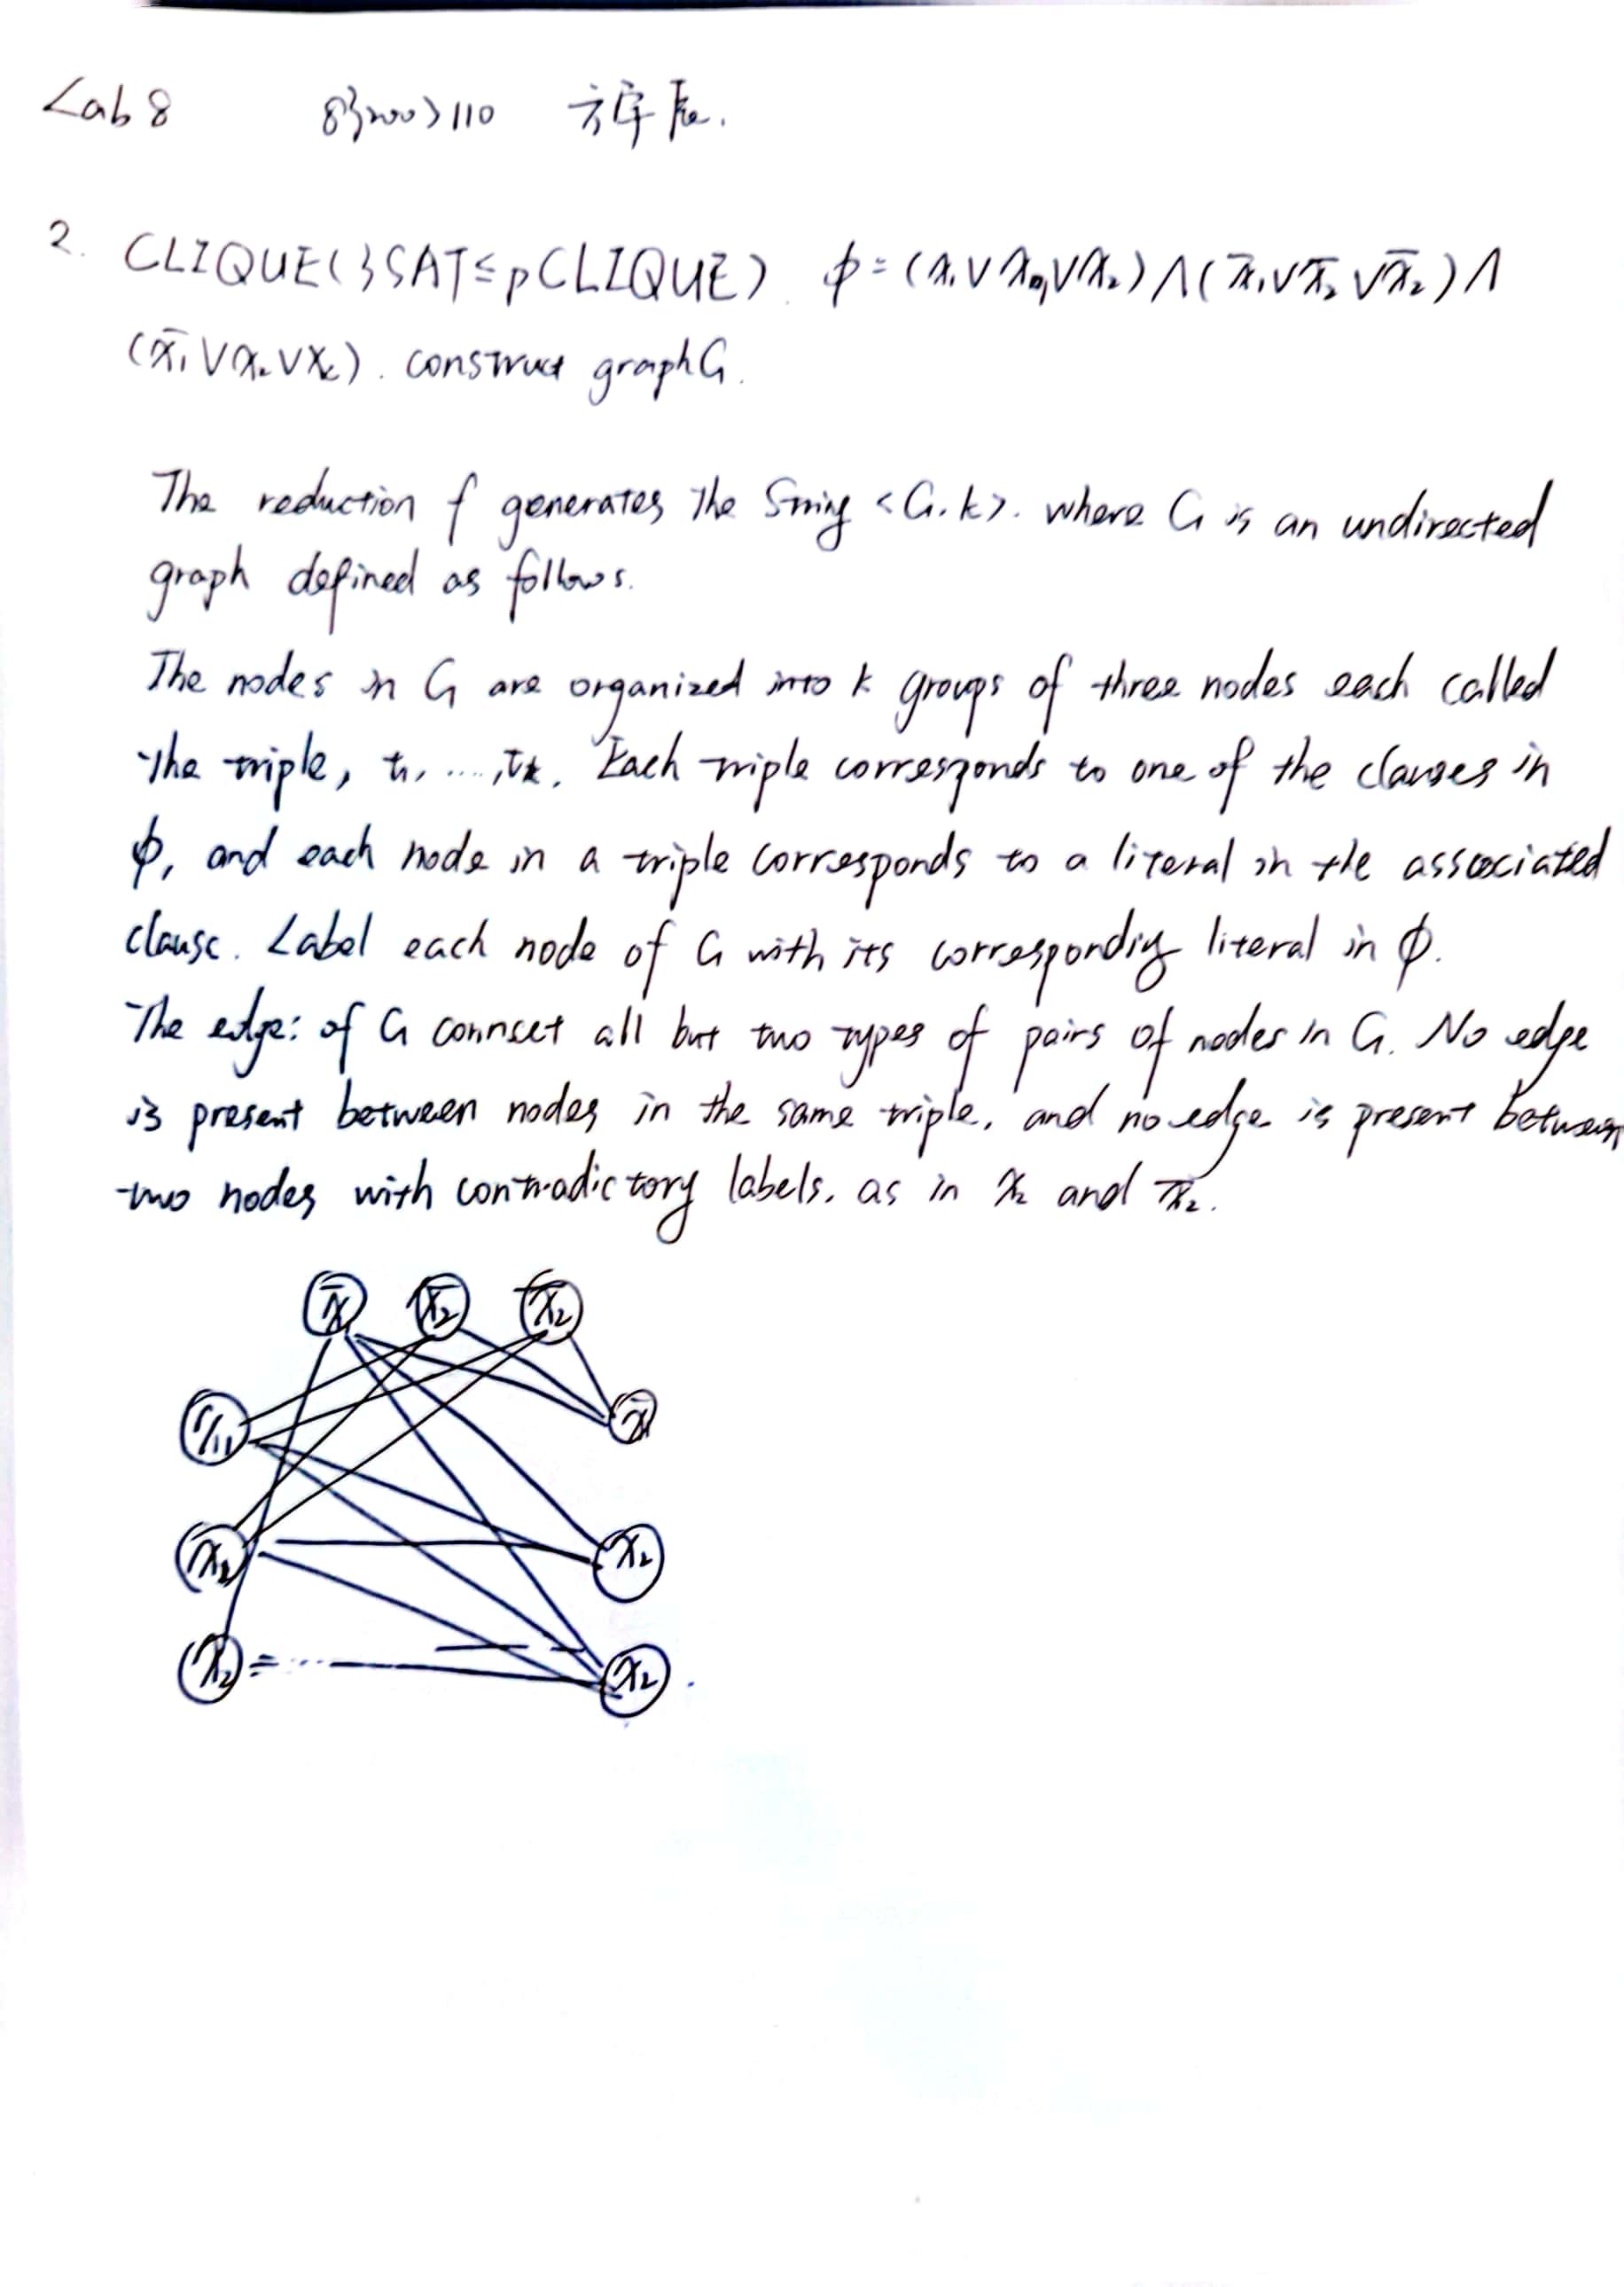 Lab 8 83200110 方宇辰.
2. CLIQUE(3SAT≤pCLIQUE). ϕ=(x₁∨x₁∨x₂)∧(x̄₁∨x̄₂∨x̄₂)∧
(x̄₁∨x₂∨x₂). construct graph G.
The reduction f generates the string <G.k>. where G is an undirected
graph defined as follows.
The nodes in G are organized into k groups of three nodes each called
the triple, t₁, ...., tk. Each triple corresponds to one of the clauses in
ϕ, and each node in a triple corresponds to a literal in the associated
clause. Label each node of G with its corresponding literal in ϕ.
The edge: of G connect all but two types of pairs of nodes in G. No edge
is present between nodes in the same triple, and no edge is present between
two nodes with contradictory labels. as in x₂ and x̄₂.
x̄₁ x̄₂ x̄₂
x̄₁
x₂
x₂ x₂